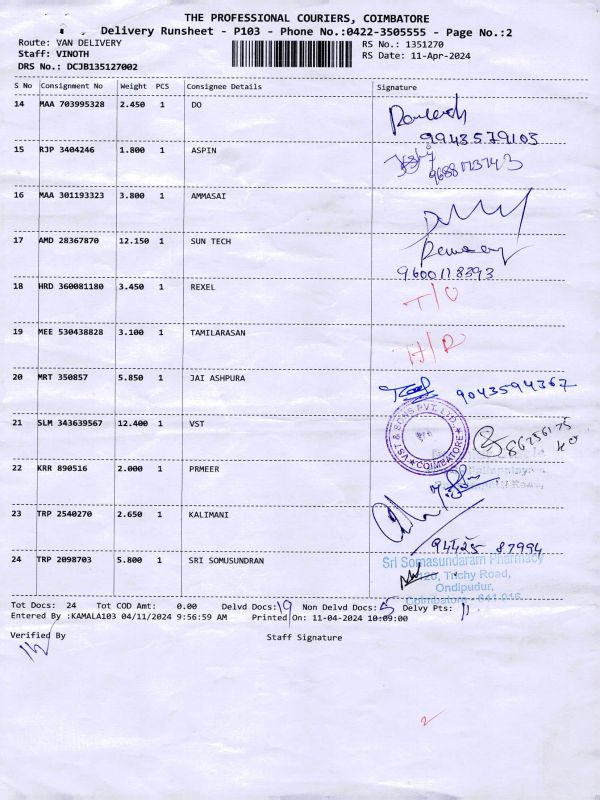 THE PROFESSIONAL COURIERS, COIMBATORE
Delivery Runsheet - P103 - Phone No.:0422-3505555 - Page No.:2
Route: VAN DELIVERY RS No.: 1351270
Staff: VINOTH RS Date: 11-Apr-2024
DRS No.: DCJB135127002
S No Consignment No Weight PCS Consignee Details Signature
14 MAA 703995328 2.450 1 DO
9943579103
15 RJP 3404246 1.800 1 ASPIN
16 MAA 301193323 3.800 1 AMMASAI
17 AMD 28367870 12.150 1 SUN TECH
9600118393
18 HRD 360081180 3.450 1 REXEL
T/O
19 MEE 530438828 3.100 1 TAMILARASAN
H/D
20 MRT 350857 5.850 1 JAI ASHPURA
9043594367
21 SLM 343639567 12.400 1 VST
VST & SONS PVT. LTD. COIMBATORE
22 KRR 890516 2.000 1 PRMEER
23 TRP 2540270 2.650 1 KALIMANI
94425 87994
24 TRP 2098703 5.800 1 SRI SOMUSUNDRAN
Sri Somasundaram Pharmacy
Trichy Road,
Ondipudur,
Coimbatore - 641 016
Tot Docs: 24 Tot COD Amt: 0.00 Delvd Docs: 19 Non Delvd Docs: 5 Delvy Pts: 11
Entered By :KAMALA103 04/11/2024 9:56:59 AM Printed On: 11-04-2024 10:09:00
Verified By Staff Signature
2